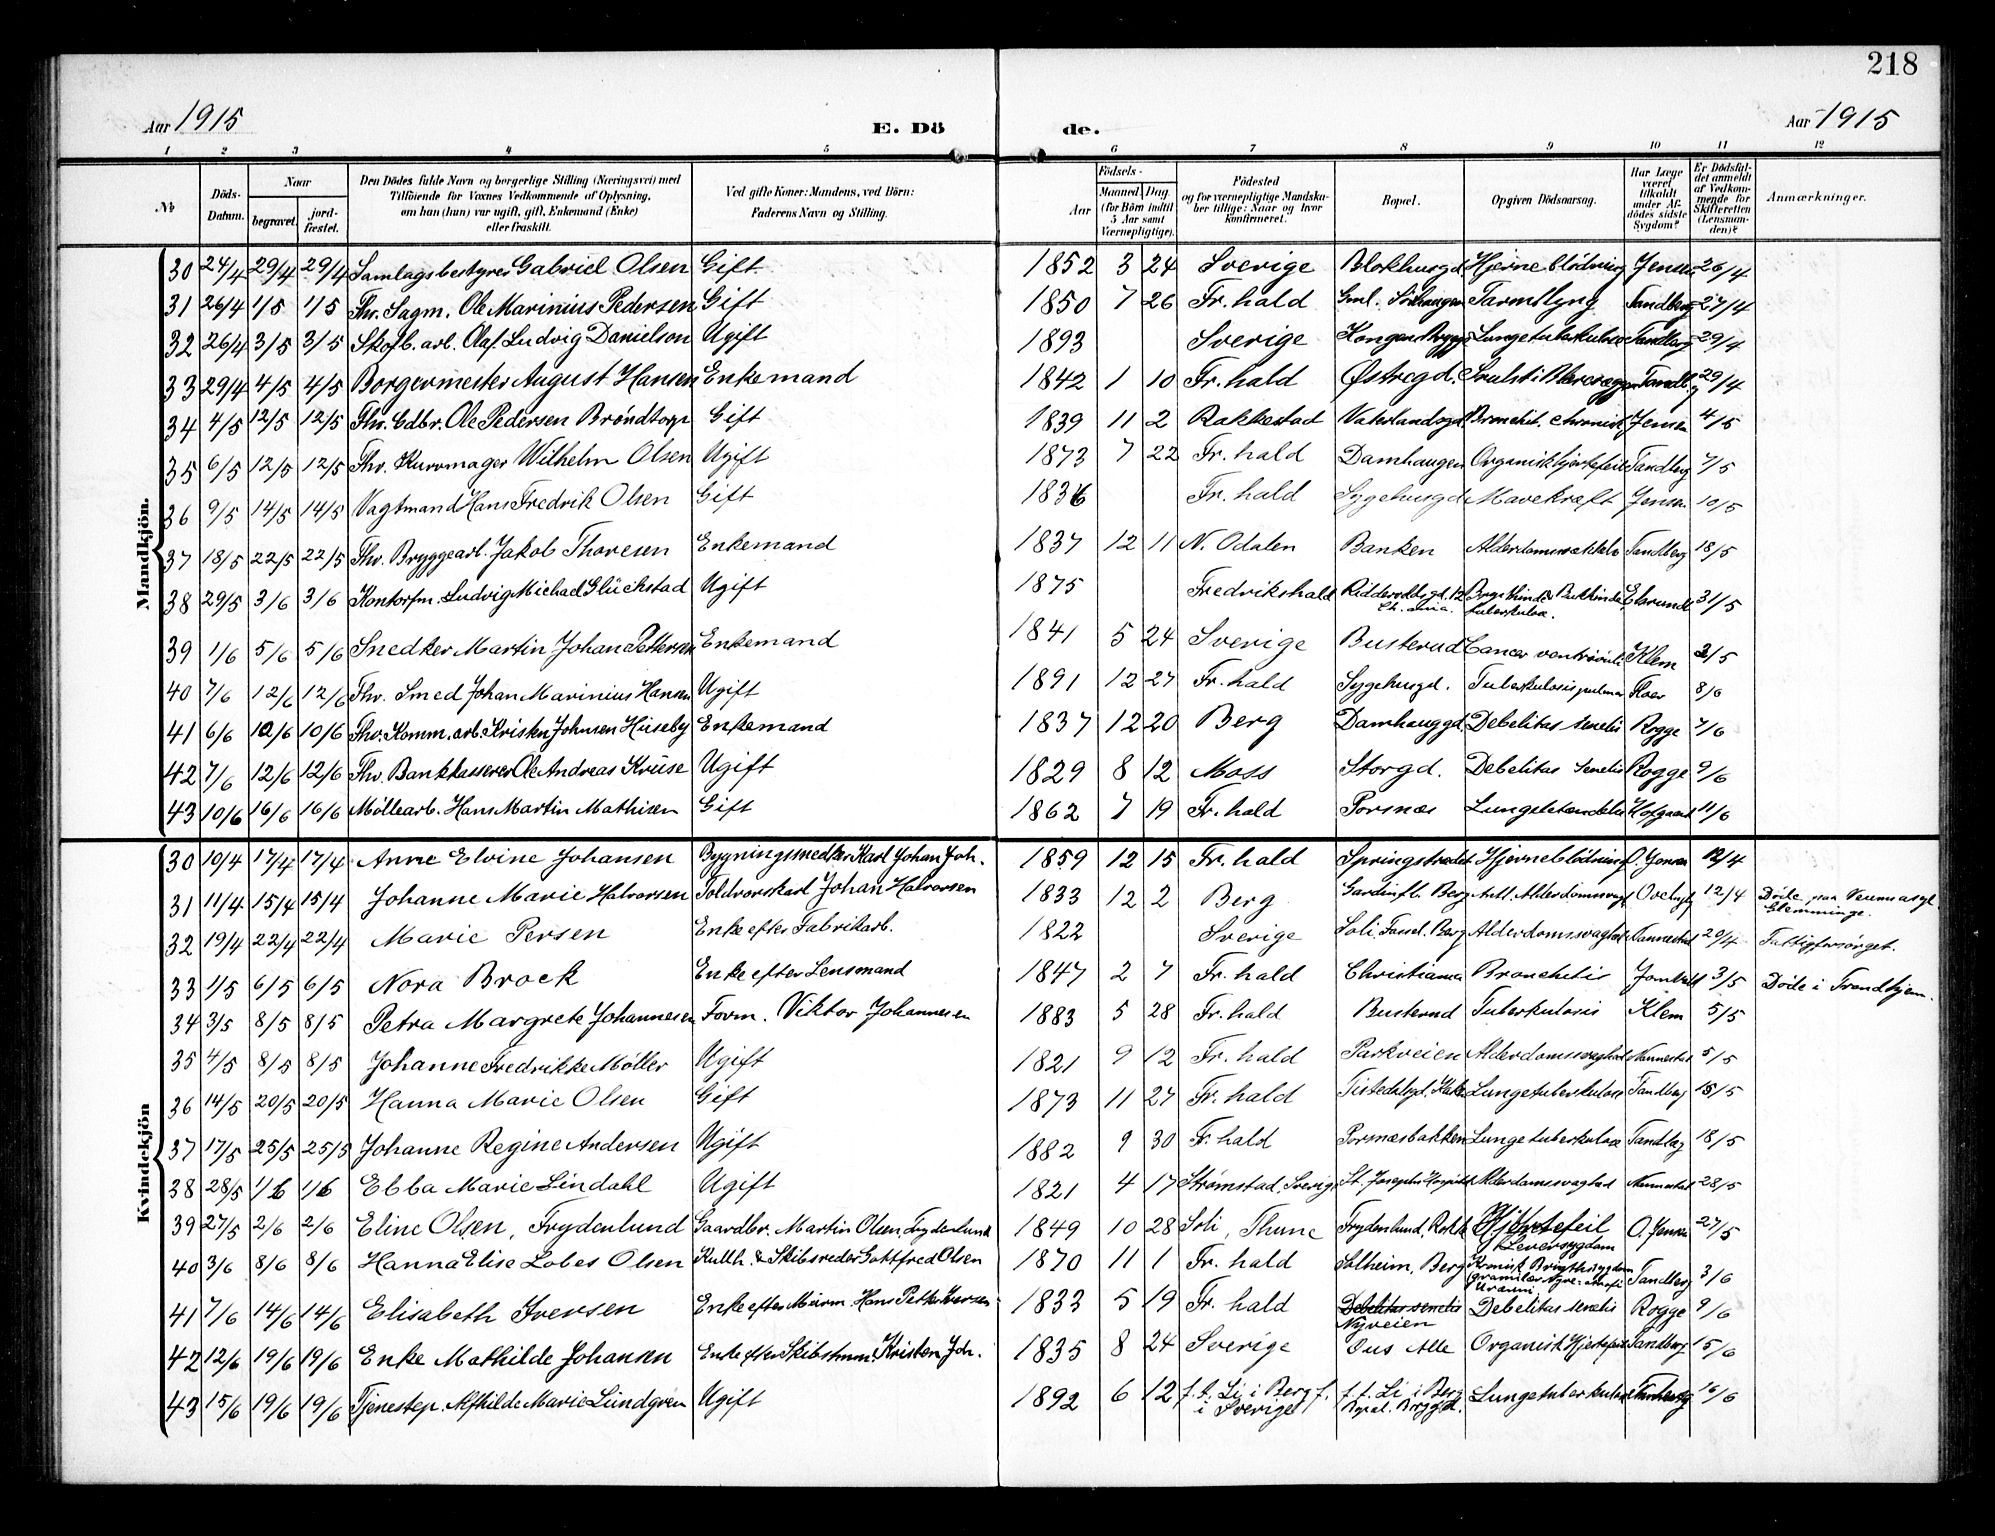 218
Aar 1915 E. Dö de. Aar 1915
1 2 3 4 5 6 7 8 9 10 11 12
No Döds-Datum. Naar begravet. jord-fæstet. Den Dödes fulde Navn og borgerlige Stilling (Næringsvei) med Tilföiende for Voxnes Vedkommende af Oplysning, om han (hun) var ugift, gift, Enkemand (Enke) eller fraskilt. Ved gifte Koner: Mandens, ved Börn: Faderens Navn og Stilling. Födsels- Aar Maaned Dag (for Börn indtil 5 Aar samt Værnepligtige). Födested og for værnepligtige Mandska-ber tillige: Naar og hvor konfirmeret. Bopæl. Opgiven Dödsaarsag. Har Læge været tilkaldt under Af-dödes sidste Sygdom? Er Dödsfal-det anmeldt af Vedkom-mende for Skifteretten (Lensman-den)? Anmærkninger.
Mandkjön.
30 24/4 29/4 29/4 Samlagsbestyrer Gabriel Olsen Gift 1852 3 24 Sverige Blokhusgd. Hjerneblödning Jensen 26/4
31 26/4 1/5 1/5 Fhv. Sagm. Ole Marinius Pedersen Gift 1850 7 26 Fr. hald Gml. Tarmslyng Tandberg 27/4
32 26/4 3/5 3/5 Skofb. arb. Olaf Ludvig Danielson Ugift 1893 Sverige Kongens Brygge Lungetuberkulose Tandberg 29/4
33 29/4 4/5 4/5 Borgermester August Hansen Enkemand 1842 1 10 Fr. hald Østregd. Svulst i Tandbg 29/4
34 4/5 12/5 12/5 Fhv. Gdbr. Ole Pedersen Bröndtorp Gift 1839 11 2 Rakkestad Vaterlandsgd. Bronchit. chronisk Jensen 4/5
35 6/5 12/5 12/5 Fhv. Kurvmager Wilhelm Olsen Ugift 1873 7 22 Fr. hald Damhaugen Organisk hjertefeil Tandberg 7/5
36 9/5 14/5 14/5 Vagtmand Hans Fredrik Olsen Gift 1836 Fr. hald Sygehusgd Mavekræft Jensen 10/5
37 18/5 22/5 22/5 Fhv. Bryggearb. Jakob Thoresen Enkemand 1837 12 11 N. Odalen Banken Tandberg 18/5
38 29/5 3/6 3/6 Kontorfm. Ludvig Michael Glückstad Ugift 1875 Fredrikshald tuberkulose. 31/5
39 1/6 5/6 5/6 Snedker Martin Johan Pettersen Enkemand 1841 5 24 Sverige Busterud Cancer ventriculi Klem 2/5
40 7/6 12/6 12/6 Fhv. Smed Johan Marinius Hansen Ugift 1891 12 27 Fr. hald Sygehusgd. Tuberkulosis pulmon Floer 8/6
41 6/6 10/6 10/6 Fhv. Komm. arb. Kristen Johnsen Huseby Enkemand 1837 12 20 Berg Damhauggd. Debelitas senelis Rogge 7/6
42 7/6 12/6 12/6 Fhv. Bankkasserer Ole Andreas Kruse Ugift 1829 8 12 Moss Storgd. Debelitas senelis Rogge 9/6
43 10/6 16/6 16/6 Møllearb. Hans Martin Mathisen Gift 1862 7 19 Fr. hald Porsnæs Hofgaard 11/6
Kvindekjön
30 10/4 17/4 17/4 Anne Elvine Johansen Bygningssnedker Karl Johan Joh. 1859 12 15 Fr. hald Springstrædet Hjerneblödning O. Jensen 12/4
31 11/4 15/4 15/4 Johanne Marie Halvorsen Toldvorskarl Johan Halvorsen 1833 12 2 Berg Berg Alderdomssvagh 12/4 Döde paa Glemminge.
32 19/4 22/4 22/4 Marie Persen Enke efter Fabrikarb. 1822 Sverige Berg Alderdomssvaghed Nannestad 20/4 Fattigforsörget.
33 1/5 6/5 6/5 Nora Brock Enke efter Lensmand 1847 2 7 Fr. hald Christiania Bronchitis 3/5 Döde i Trondhjem.
34 3/5 8/5 8/5 Petra Margrete Johannesen Form. Viktor Johannesen 1883 5 28 Fr. hald Busterud Tuberkulosis Klem 5/5
35 4/5 8/5 8/5 Johanne Fredrikke Møller Ugift 1821 9 12 Fr. hald Parkveien Alderdomssvaghed Nannestad 5/5
36 14/5 20/5 20/5 Hanna Marie Olsen Gift 1873 11 27 Fr. hald Tistedalsgd. Lungetuberkulose Tandberg 15/5
37 17/5 25/5 25/5 Johanne Regine Andersen Ugift 1882 9 30 Fr. hald Porsnæsbakken Lungetuberkulose Tandbeg 18/5
38 28/5 1/6 1/6 Ebba Marie Lindahl Ugift 1821 4 17 Strømstad, Sverige St. Josephs Hospital Alderdomssvaghed Nannestad 28/5
39 27/5 2/6 2/6 Eline Olsen, Frydenlund Gaardbr. Martin Olsen, Frydenlund 1849 10 28 Soli, Thune Frydenlund, Rokke Hjertefeil Leversygdom O. Jensen 27/5
40 3/6 8/6 8/6 Hanna Elise Lobes Olsen Kulh. & Skibsreder Gottfred Olsen 1870 11 1 Fr. hald Solheim, Berg Kronisk Brigthssygdom Uræmi. Tandberg 3/6
41 7/6 14/6 14/6 Elisabeth Iversen Enke efter Murm. Hans Petter Iversen 1833 5 19 Fr. hald Debelitas senelis Nyveien Debelitas senelis Rogge 9/6
42 12/6 19/6 19/6 Enke Mathilde Johansen Enke efter Skibstmm. Kristen Joh. 1835 8 24 Sverige Ous Alle Organisk Hjertefeil Tandberg 15/6
43 15/6 19/6 19/6 Tjenestep. Alfhilde Marie Lundgren Ugift 1892 6 12 f. t. Li i Berg f. i Sverige f. t. Li i Berg Bopæl. Bryggd. Lungetuberkulose Tandberg 16/6